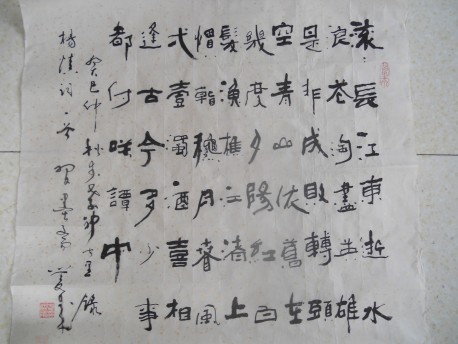 滚〻長江東逝水
浪花淘盡英雄
是非成敗轉頭
空青山依舊在
幾度夕陽紅白
髮漁樵江渚上
慣看穐月春風
弌壺濁酒喜相
逢古今多少事
都付咲譚中
癸巳仲秋
楊慎詞一首